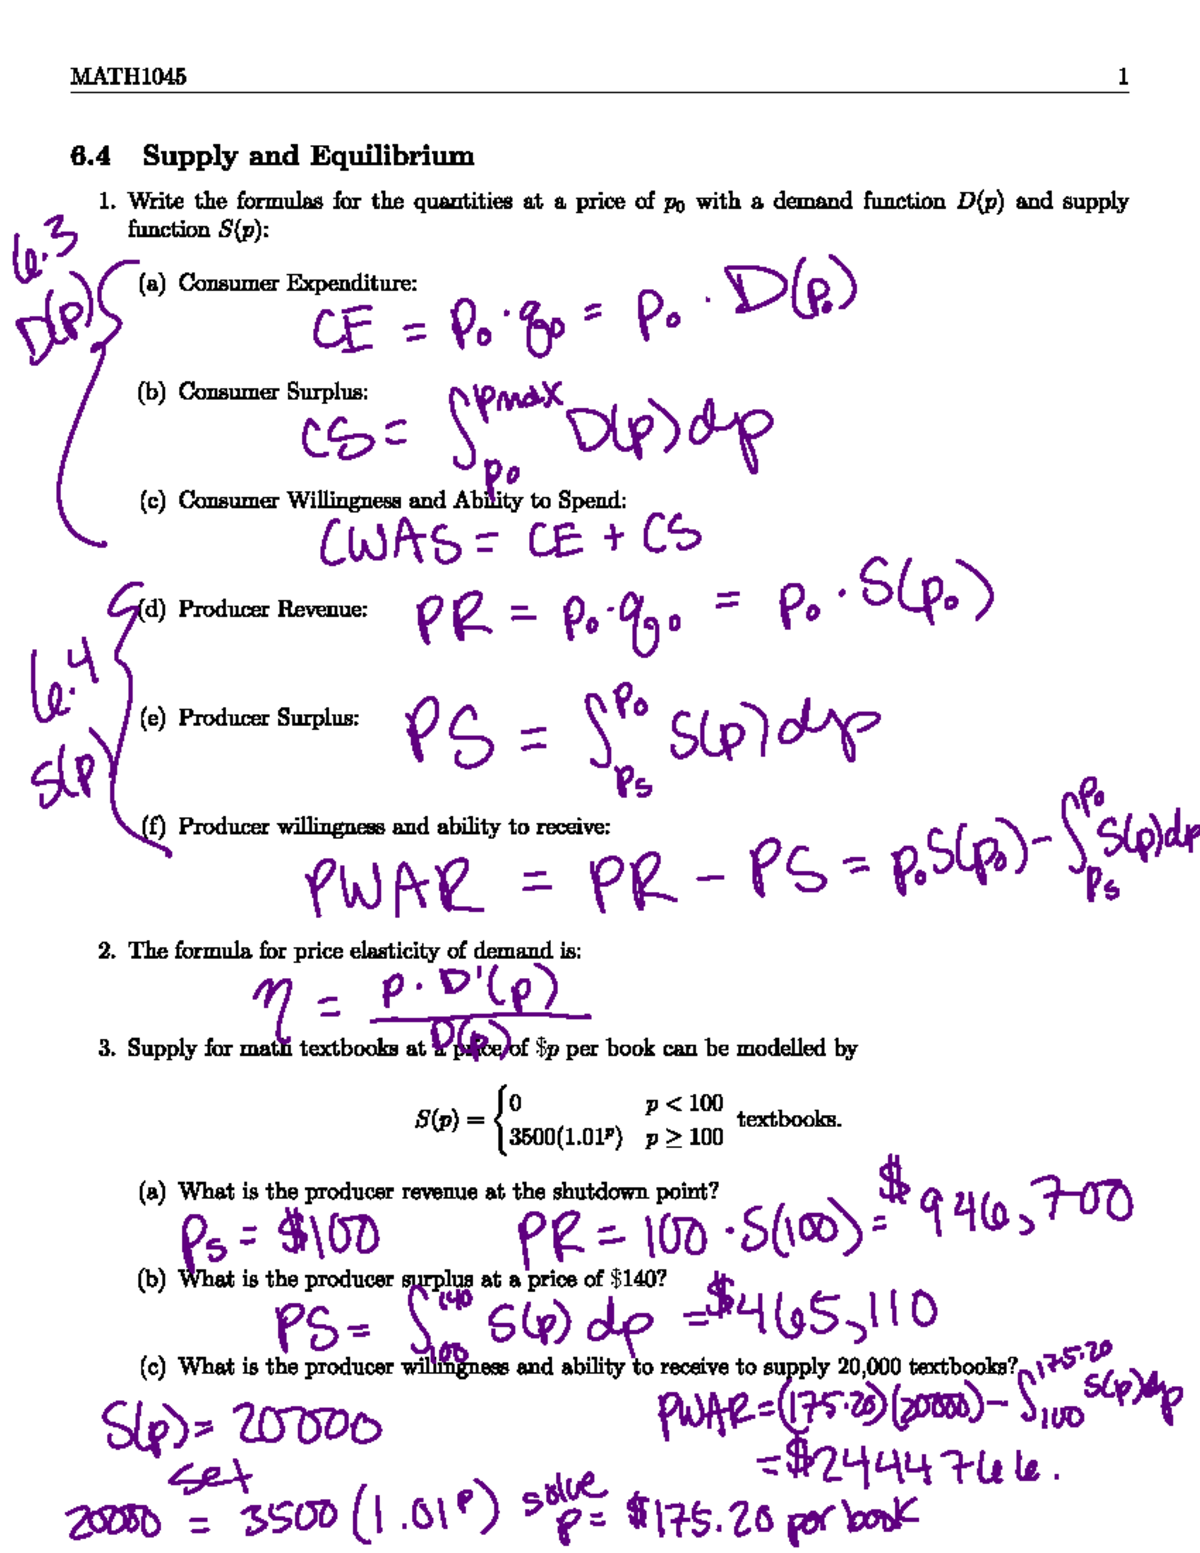 MATH1045 1
6.4 Supply and Equilibrium
1. Write the formulas for the quantities at a price of p₀ with a demand function D(p) and supply
function S(p):
6.3
D(p)
(a) Consumer Expenditure:
CE = p₀ · q₀ = p₀ · D(p₀)
(b) Consumer Surplus:
CS = ∫_{p₀}^{pmax} D(p) dp
(c) Consumer Willingness and Ability to Spend:
CWAS = CE + CS
6.4
S(p)
(d) Producer Revenue:
PR = p₀ · q₀ = p₀ · S(p₀)
(e) Producer Surplus:
PS = ∫_{ps}^{p₀} S(p) dp
(f) Producer willingness and ability to receive:
PWAR = PR - PS = p₀S(p₀) - ∫_{ps}^{p₀} S(p)dp
2. The formula for price elasticity of demand is:
η = p · D'(p) / D(p)
3. Supply for math textbooks at a price of $p per book can be modelled by
S(p) = { 0 p < 100
3500(1.01^p) p ≥ 100 textbooks.
(a) What is the producer revenue at the shutdown point?
Ps = $100 PR = 100 · S(100) = $946,700
(b) What is the producer surplus at a price of $140?
PS = ∫_{100}^{140} S(p) dp = $465,110
(c) What is the producer willingness and ability to receive to supply 20,000 textbooks?
S(p) = 20000 PWAR = (175.20)(20000) - ∫_{100}^{175.20} S(p)dp
set = $2444766.
20000 = 3500(1.01^p) solve p = $175.20 per book